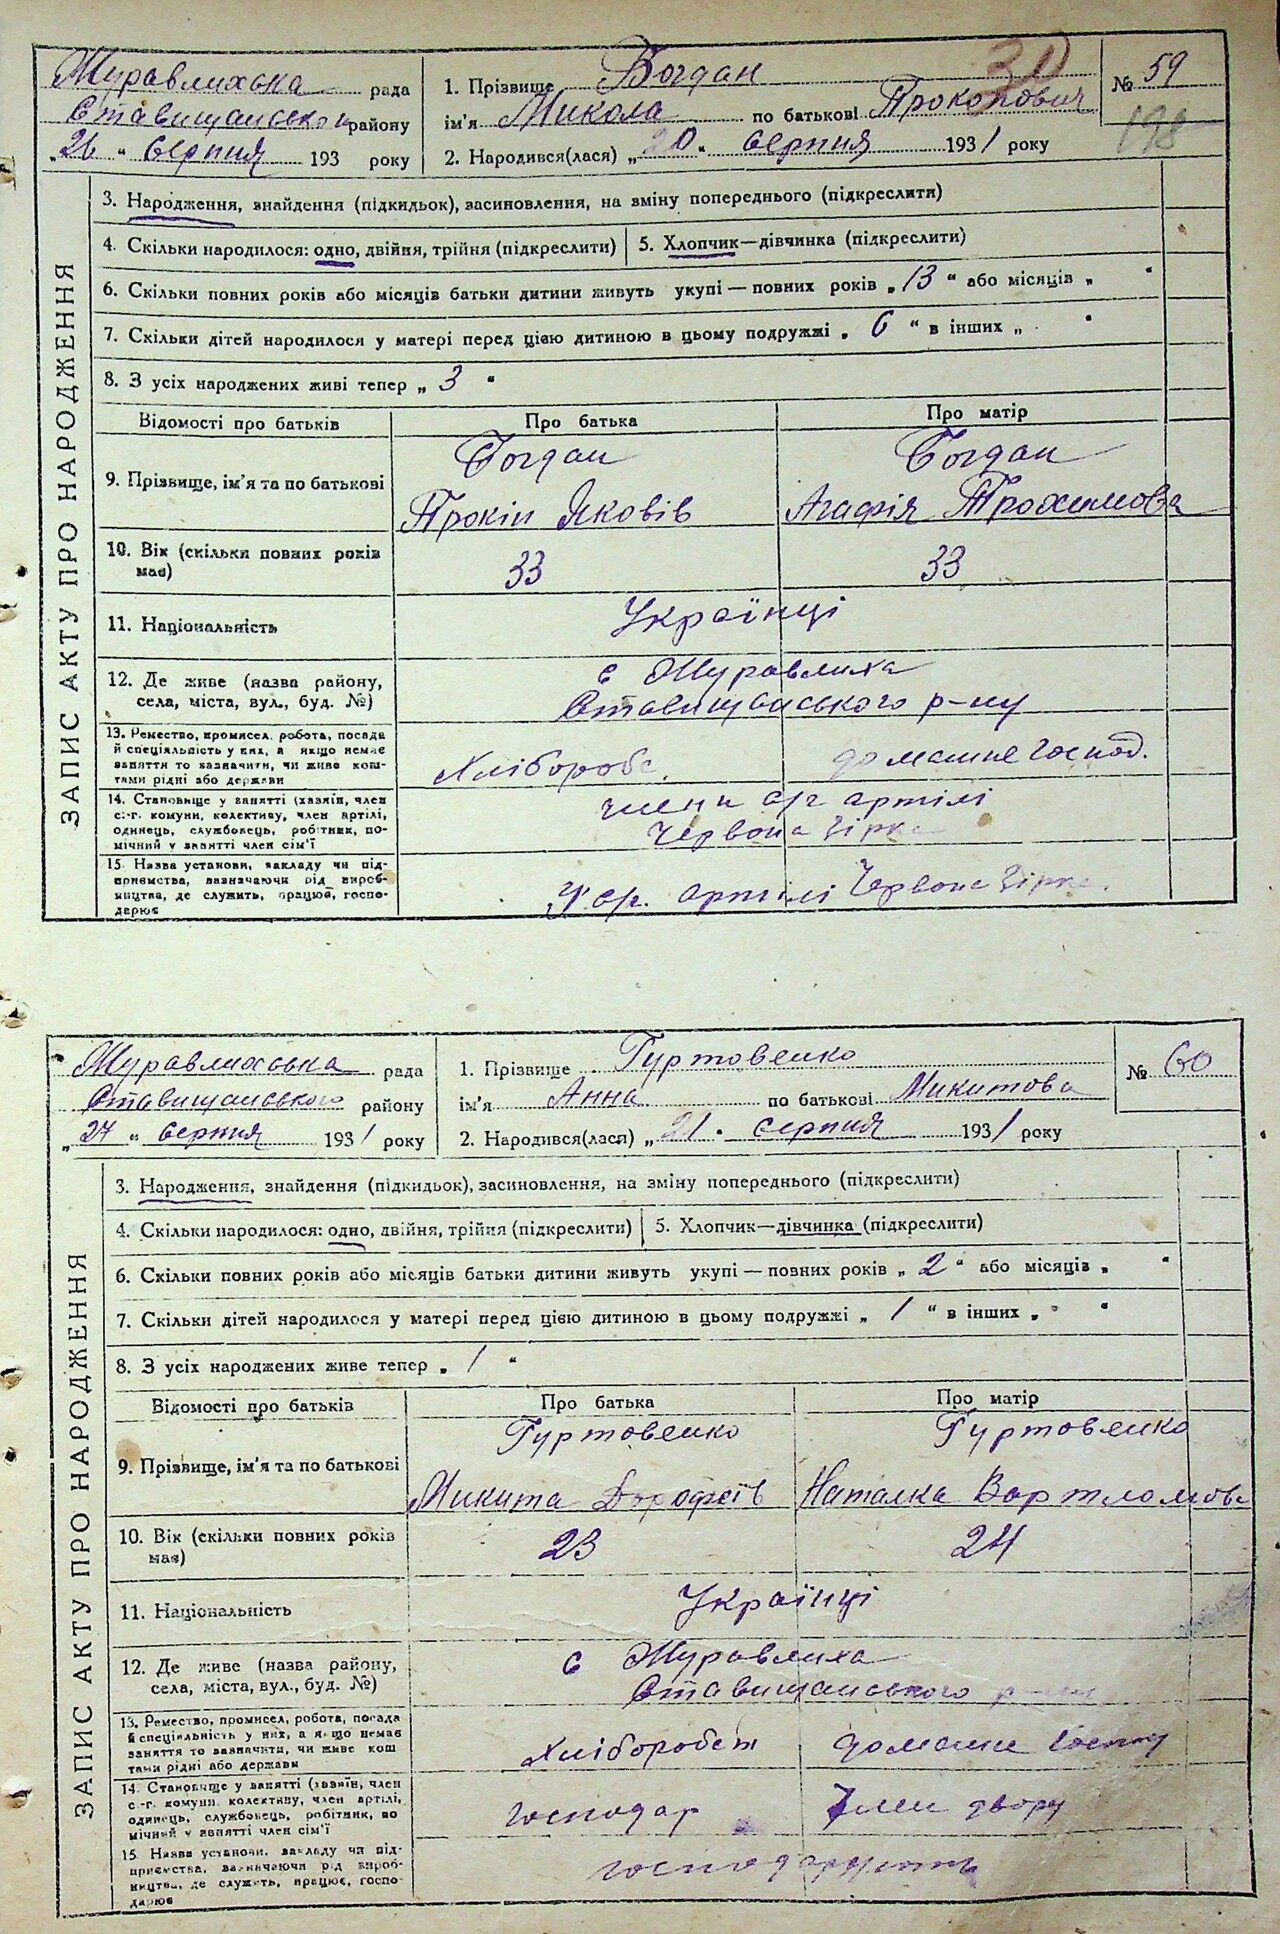 Журавлихська рада
Ставищанськ району
„26“ серпня 193 року
1. Прізвище Богдан
ім'я Микола по батькові Прокопович
2. Народився(лася) „20“ серпня 1931 року
№ 59
198
ЗАПИС АКТУ ПРО НАРОДЖЕННЯ
3. Народження, знайдення (підкидьок), засиновлення, на зміну попереднього (підкреслити)
4. Скільки народилося: одно, двійня, трійня (підкреслити) 5. Хлопчик—дівчинка (підкреслити)
6. Скільки повних років або місяців батьки дитини живуть укупі — повних років „13“ або місяців „ “
7. Скільки дітей народилося у матері перед цією дитиною в цьому подружжі „6“ в інших „ “
8. З усіх народжених живі тепер „3“
Відомості про батьків Про батька Про матір
9. Прізвище, ім'я та по батькові
Богдан Богдан
Прокіп Яковів Агафія Трохимова
10. Вік (скільки повних років має) 33 33
11. Національність Українці
12. Де живе (назва району, села, міста, вул., буд. №)
с Журавлиха
Ставищанського р-ну
13. Ремество, промисел, робота, посада й спеціальність у них, а якщо немає заняття то зазначити, чи живе коштами рідні або держави
Хлібороб. домашне господ.
14. Становище у занятті (хазяїн, член с.-г. комуни, колективу, член артілі, одинець, службовець, робітник, помічний у занятті член сім'ї
члени с/г артілі
Червона Зірка
15. Назва установи, закладу чи підприємства, зазначаючи рід виробництва, де служить, працює, господарює
У с/г. артілі Червона Зірка.
Журавлиховська рада
Ставищанського району
„27“ серпня 1931 року
1. Прізвище Гуртовенко
ім'я Анна по батькові Микитова
2. Народився(лася) „21“ серпня 1931 року
№ 60
ЗАПИС АКТУ ПРО НАРОДЖЕННЯ
3. Народження, знайдення (підкидьок), засиновлення, на зміну попереднього (підкреслити)
4. Скільки народилося: одно, двійня, трійня (підкреслити) 5. Хлопчик—дівчинка (підкреслити)
6. Скільки повних років або місяців батьки дитини живуть укупі — повних років „2“ або місяців „ “
7. Скільки дітей народилося у матері перед цією дитиною в цьому подружжі „1“ в інших „ “
8. З усіх народжених живе тепер „1“
Відомості про батьків Про батька Про матір
9. Прізвище, ім'я та по батькові
Гуртовенко Гуртовенко
Микита Дорофеїв Наталка Вартломова
10. Вік (скільки повних років має) 23 24
11. Національність Українці
12. Де живе (назва району, села, міста, вул., буд. №)
с Журавлиха
Ставищанського
13. Ремество, промисел, робота, посада й спеціальність у них, а якщо немає заняття то зазначити, чи живе коштами рідні або держави
Хліборобст домашне
14. Становище у занятті (хазяїн, член с.-г. комуни, колективу, член артілі, одинець, службовець, робітник, помічний у занятті член сім'ї
господар Член двору
15. Назва установи, закладу чи підприємства, зазначаючи рід виробництва, де служить, працює, господарює